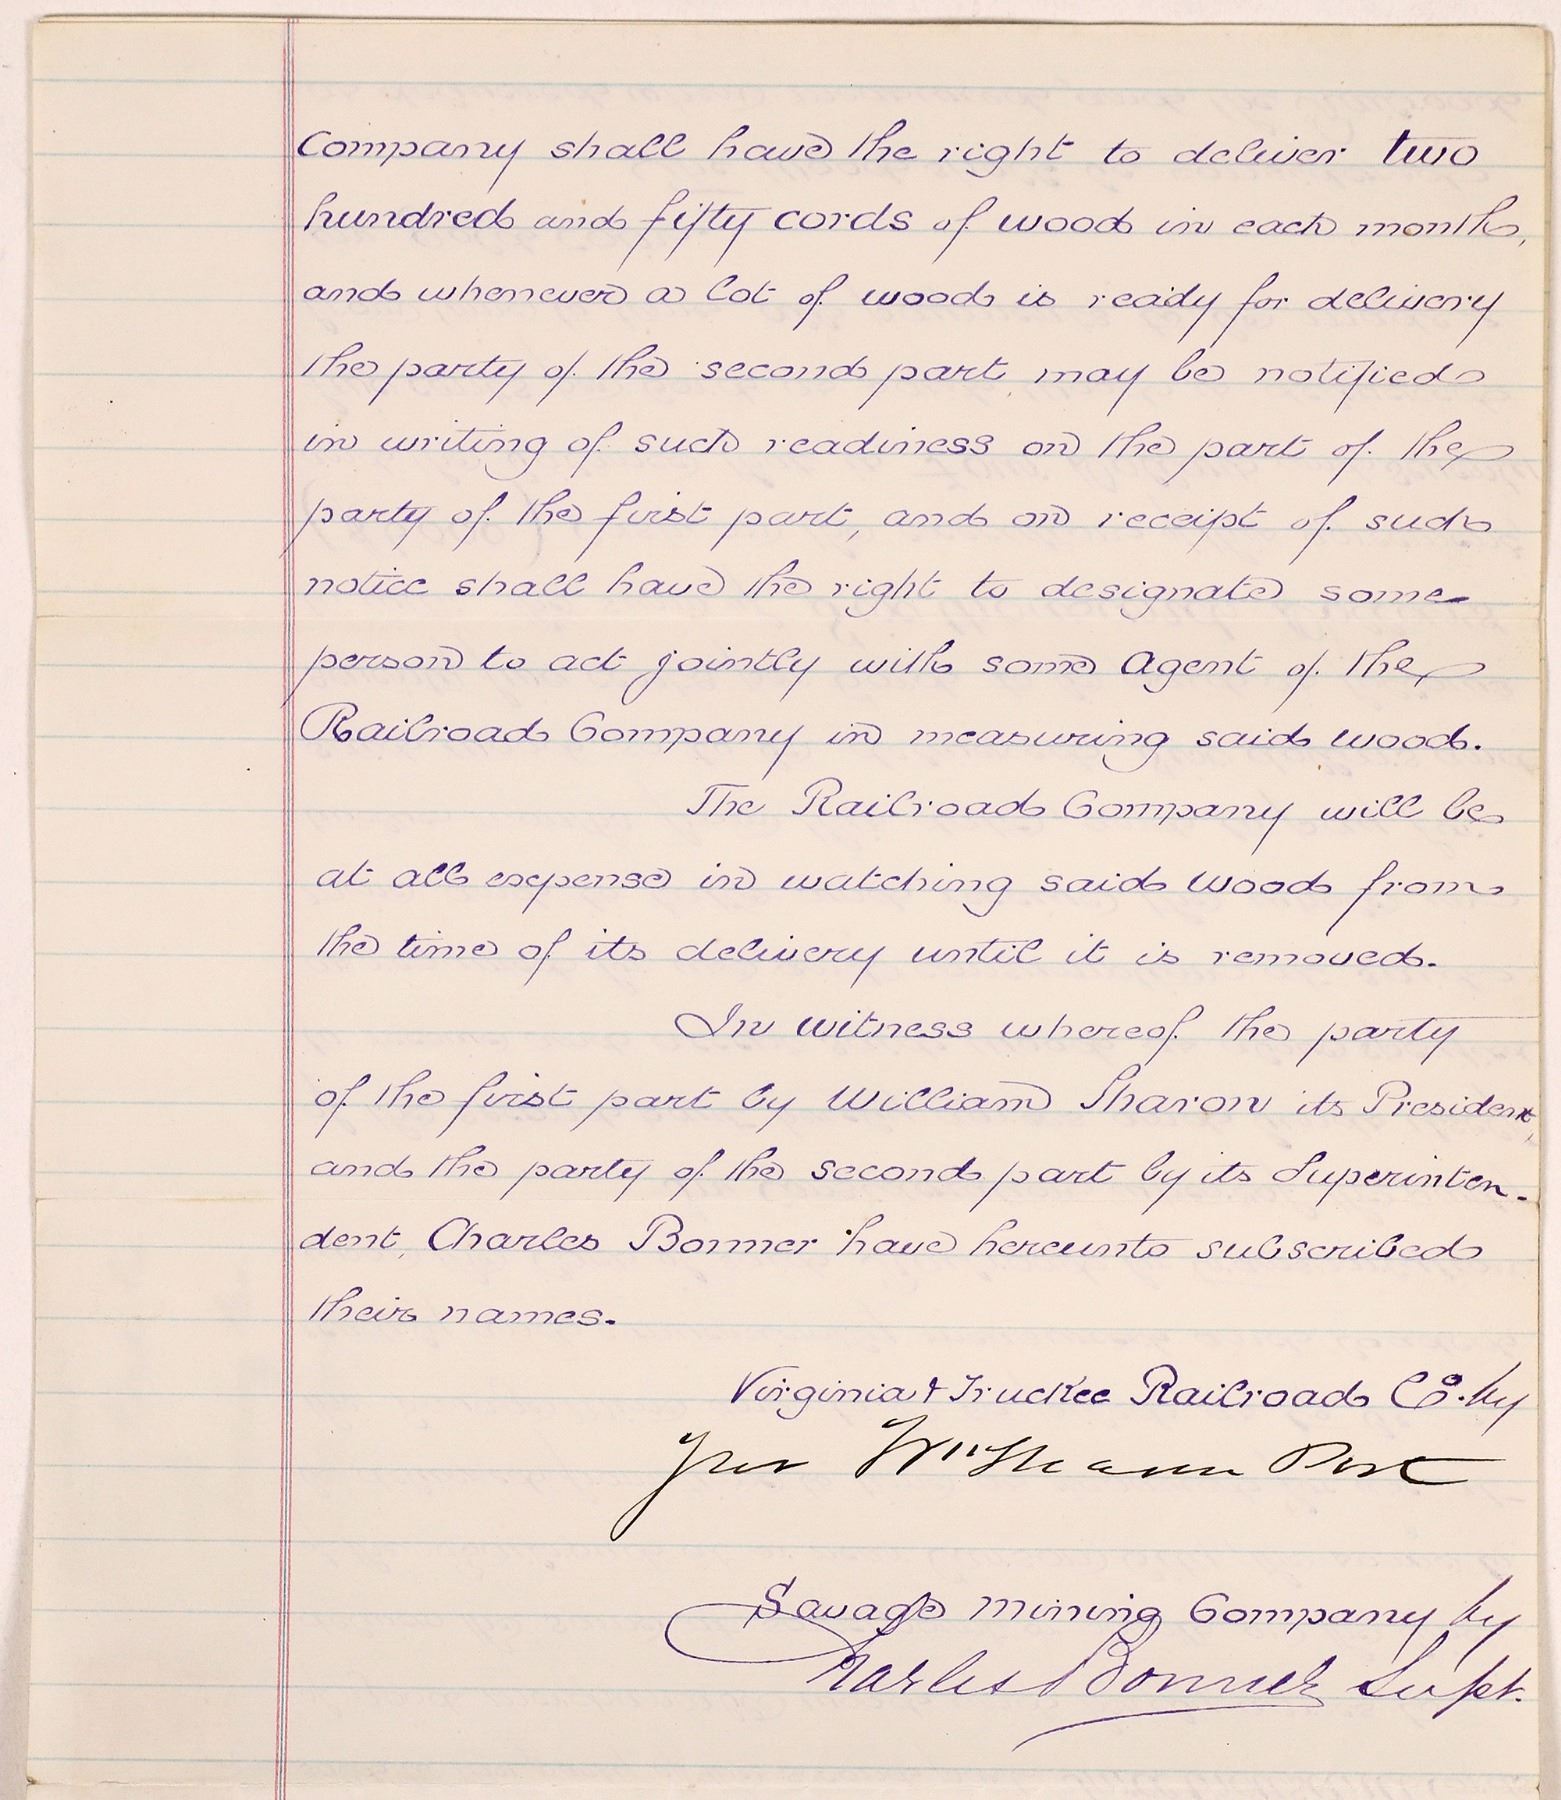 Company shall have the right to deliver two
hundred and fifty cords of wood in each month,
and whenever a lot of wood is ready for delivery
the party of the second part may be notified
in writing of such readiness on the part of the
party of the first part, and on receipt of such
notice shall have the right to designate some
person to act jointly with some Agent of the
Railroad Company in measuring said wood.
The Railroad Company will be
at all expense in watching said wood from
the time of its delivery until it is removed.
In witness whereof the party
of the first part by William Sharon its President,
and the party of the second part by its Superinten-
dent, Charles Bonner have hereunto subscribed
their names.
Virginia & Truckee Railroad Co. by
Wm Sharon Prst
Savage Mining Company by
Charles Bonner Supt.